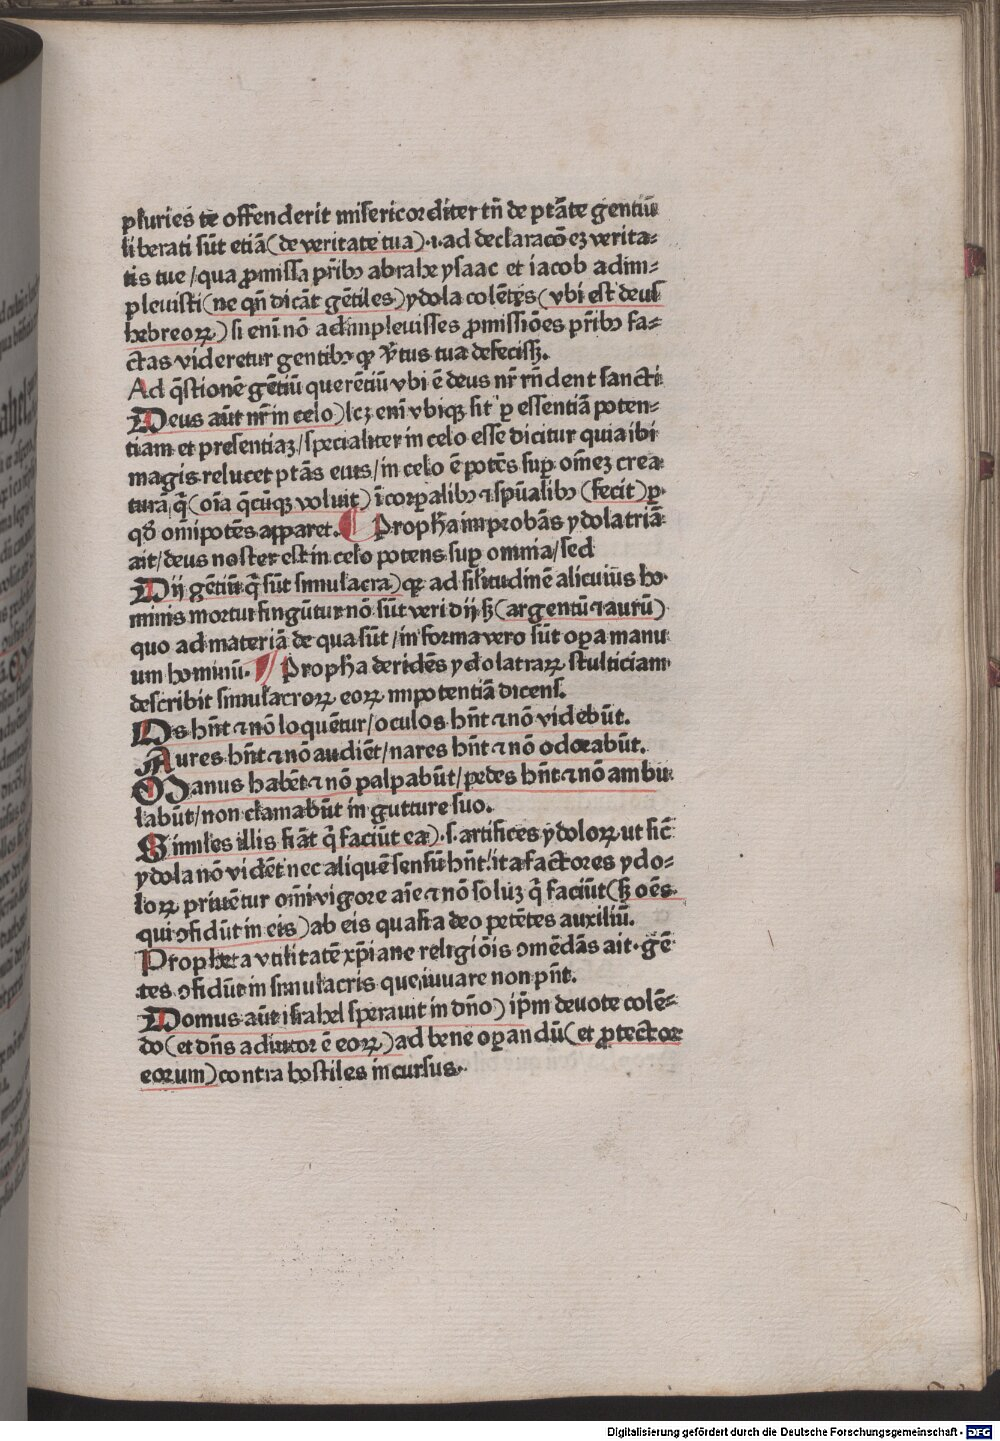 pluries te offenderit misericorditer tn̄ de ptāte gentiū
liberati sūt etiā (de veritate tua) .i. ad declaracōeꝫ verita=
tis tue / qua ꝓmissa pr̄ibꝰ abrahe ysaac et iacob adim=
pleuisti (ne qn̄ dicāt gētiles) ydola colētes (vbi est deus
hebreoꝝ) si eni nō adimpleuisses ꝓmissiōes pr̄ibꝰ fa=
ctas videretur gentibꝰ ꝙ v̄tus tua defecisꝫ.
Ad q̄stionē gētiū querētiū vbi ē deus nr̄ rn̄dent sancti
Deus aūt nr̄ in celo) lcꝫ eni vbiqꝫ sit ꝑ essentiā poten=
tiam et presentiaꝫ / specialiter in celo esse dicitur quia ibi
magis relucet ptās eius / in celo ē potēs suꝑ om̄eꝫ crea
turā q̄ (oīa q̄cūqꝫ voluit) ī corꝑalibꝰ ⁊ spūalibꝰ (fecit) ꝑ
qđ om̄ipotēs apparet. Propha improbās ydolatriā
ait / deus noster est in celo potens suꝑ omnia / sed
Dij gētiū q̄ sūt simulacra) ꝙ ad sil'itudinē alicuiꝰ ho
minis mortui fingūtur nō sūt veri dij sꝫ (argentū ⁊ aurū)
quo ad materiā de qua sūt / in forma vero sūt oꝑa manu
um hominū. Propha deridēs ydolatraꝝ stulticiam
describit simulacroꝝ eoꝝ impotentiā dicens.
Os hn̄t ⁊ nō loquētur / oculos hn̄t ⁊ nō videbūt.
Aures hn̄t ⁊ nō audiēt / nares hn̄t ⁊ nō odorabūt.
Manus habēt ⁊ nō palpabūt / pedes hn̄t ⁊ nō ambu
labūt / non clamabūt in gutture suo.
Similes illis fiāt q̄ faciūt ea) .s. artifices ydoloꝝ ut sic̄
ydola nō vidēt nec aliquē sensū hn̄t / ita factores ydo=
loꝝ priuētur om̄i vigore aīe ⁊ nō soluꝫ q̄ faciūt (sꝫ oēs
qui ꝯfidūt in eis) ab eis quasi a deo petētes auxiliū.
Propheta vtilitatē xp̄iane religiōis ꝯmēdās ait. gē
tes ꝯfidūt in simulacris que iuuare non pn̄t.
Domus aūt israhel sperauit in dn̄o) ip̄m deuote colē=
do (et dn̄s adiutor ē eoꝝ) ad bene oꝑandū (et ꝓtector
eorum) contra hostiles incursus.
Digitalisierung gefördert durch die Deutsche Forschungsgemeinschaft - DFG